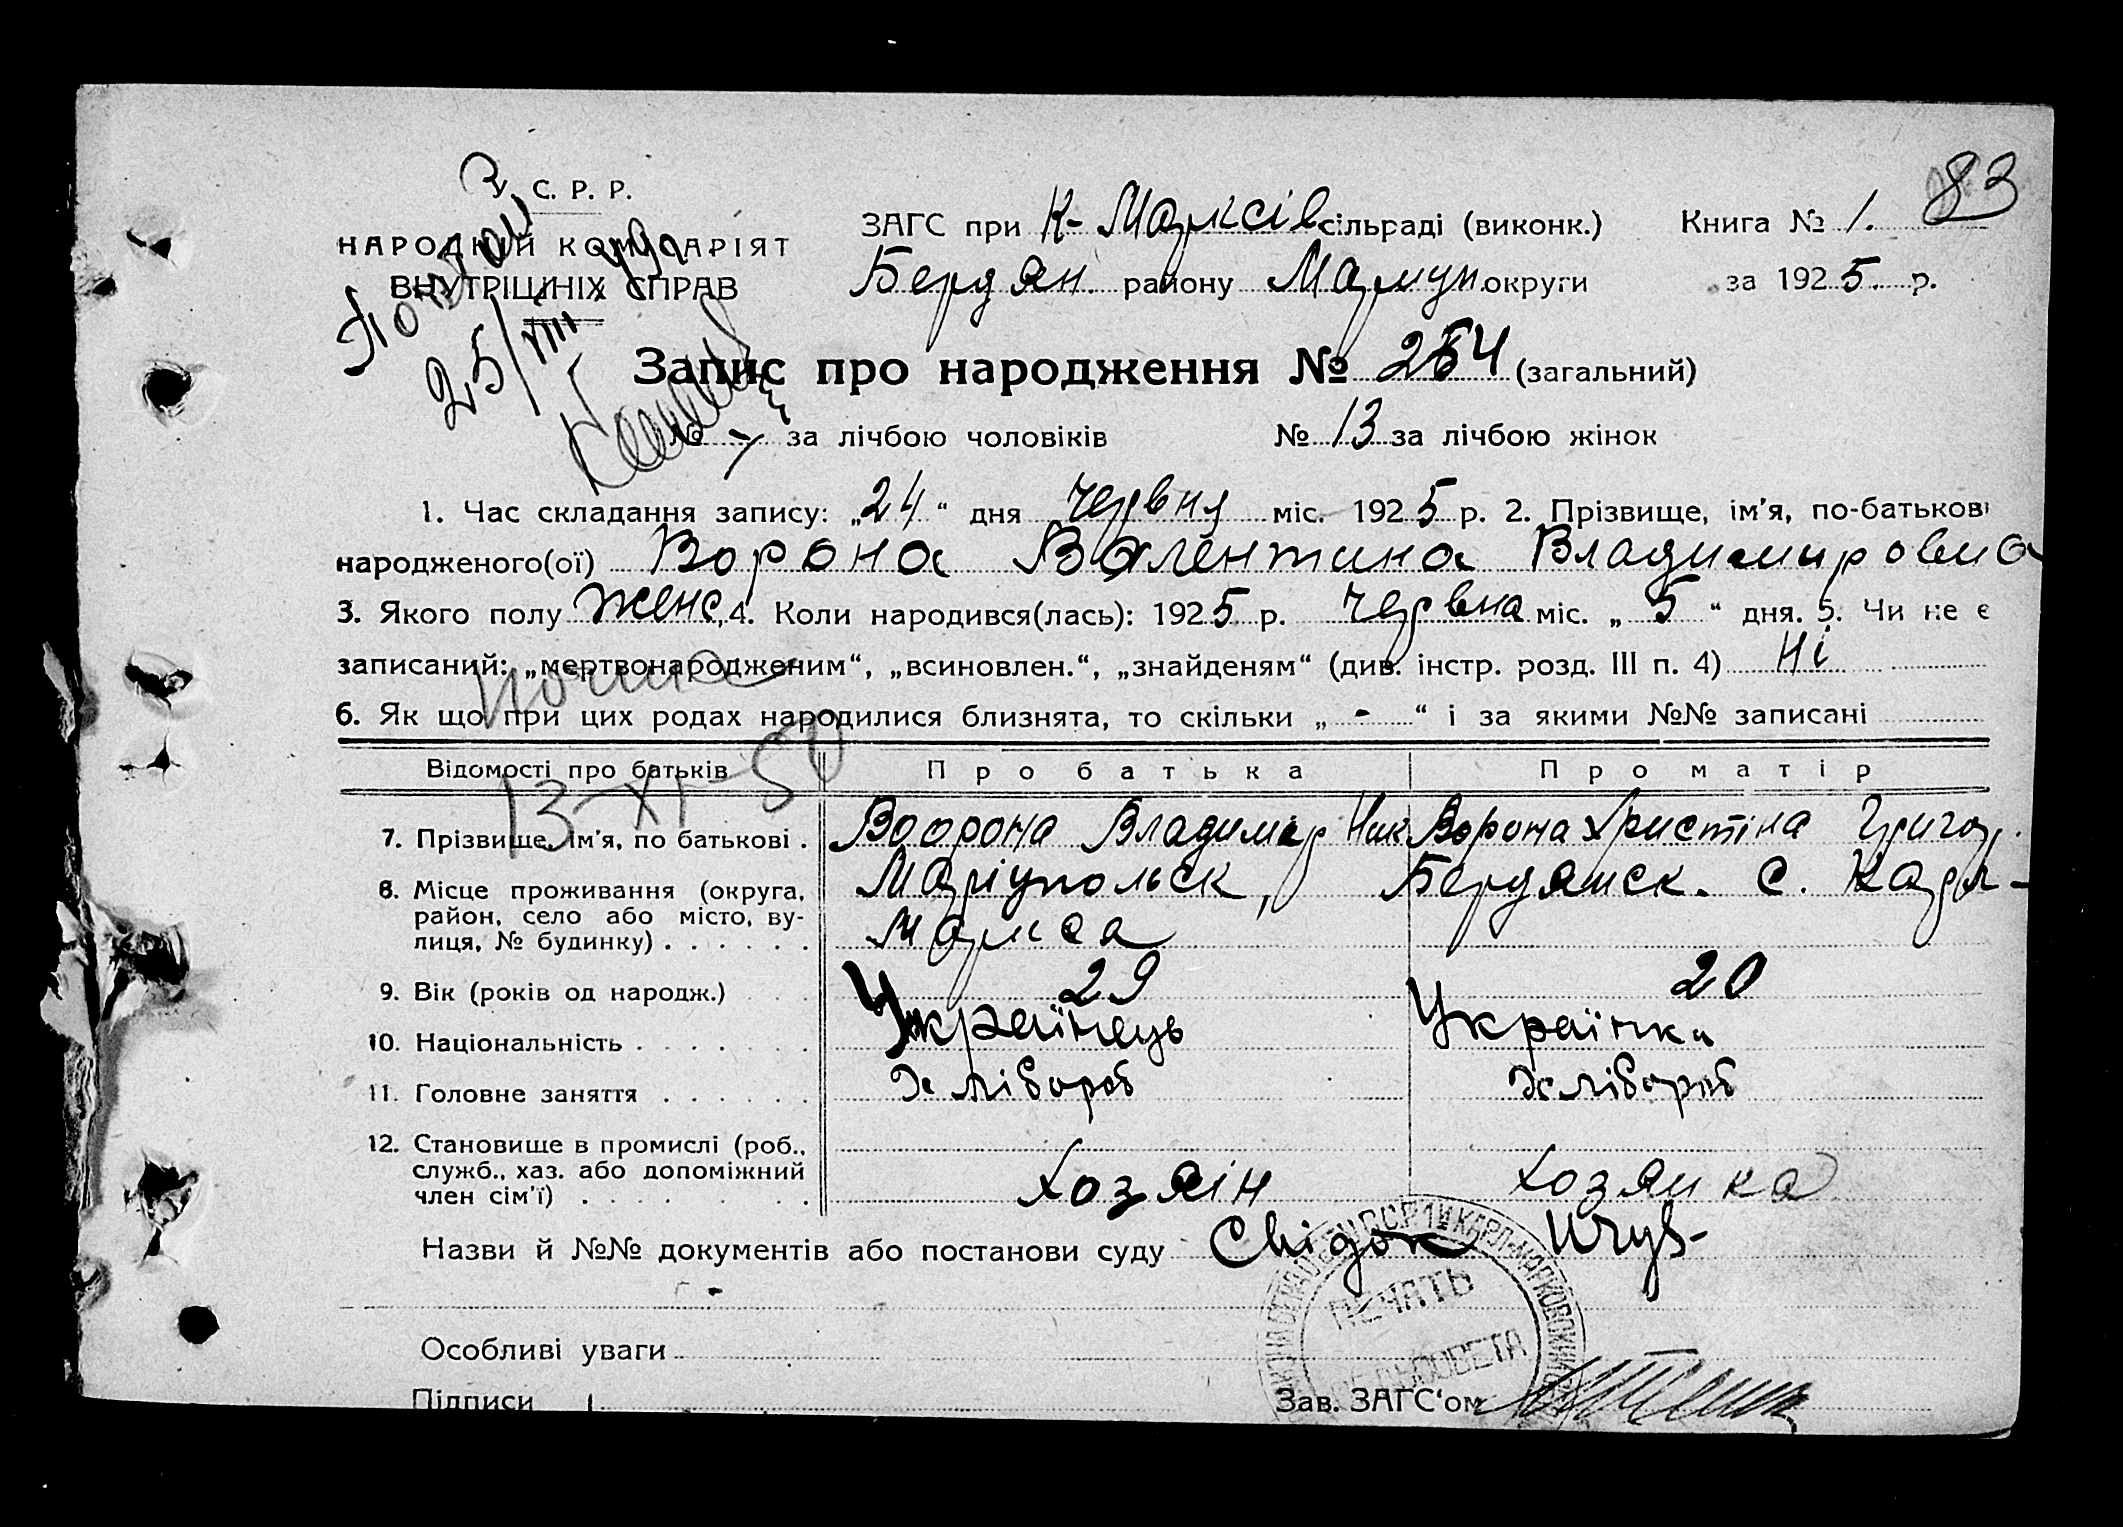 83
У. С. Р. Р.
НАРОДНІЙ КОМІСАРІЯТ
ВНУТРІШНІХ СПРАВ
25/VIII
ЗАГС при К-Марксів сільраді (виконк.) Книга № 1.
Бердян. району Мариуп. округи за 1925 р.
Запис про народження № 254 (загальний)
№ - за лічбою чоловіків № 13 за лічбою жінок
1. Час складання запису: „24“ дня червня міс. 1925 р. 2. Прізвище, ім'я, по-батькові
народженого(ої) Ворона Валентина Владимировна
3. Якого полу женс, 4. Коли народився(лась): 1925 р. червна міс. „5“ дня. 5. Чи не є
записаний: „мертвонародженим“, „всиновлен.“, „знайденям“ (див. інстр. розд. III п. 4) Ні
6. Як що при цих родах народилися близнята, то скільки „-“ і за якими №№ записані
13-XI-50
Відомості про батьків Про батька Про матір
7. Прізвище, ім'я, по батькові . Воорона Владимір Ник Ворона Христіна Григор.
8. Місце проживання (округа, Маріупольск, Бердянск. с. Карл-
район, село або місто, ву- Маркса
лиця, № будинку) . . . . . .
9. Вік (років од народж.) 29 20
10. Національність . . . . . . Українець Українка
11. Головне заняття . . . . . . Хлібороб Хлібороб
12. Становище в промислі (роб.,
служб., хаз. або допоміжний Хозяін Хозяика
член сім'ї) . . . . . .
Назви й №№ документів або постанови суду Свідок
ПЕЧАТЬ
СЕЛЬСОВЕТА
Особливі уваги
Підписи Зав. ЗАГС'ом